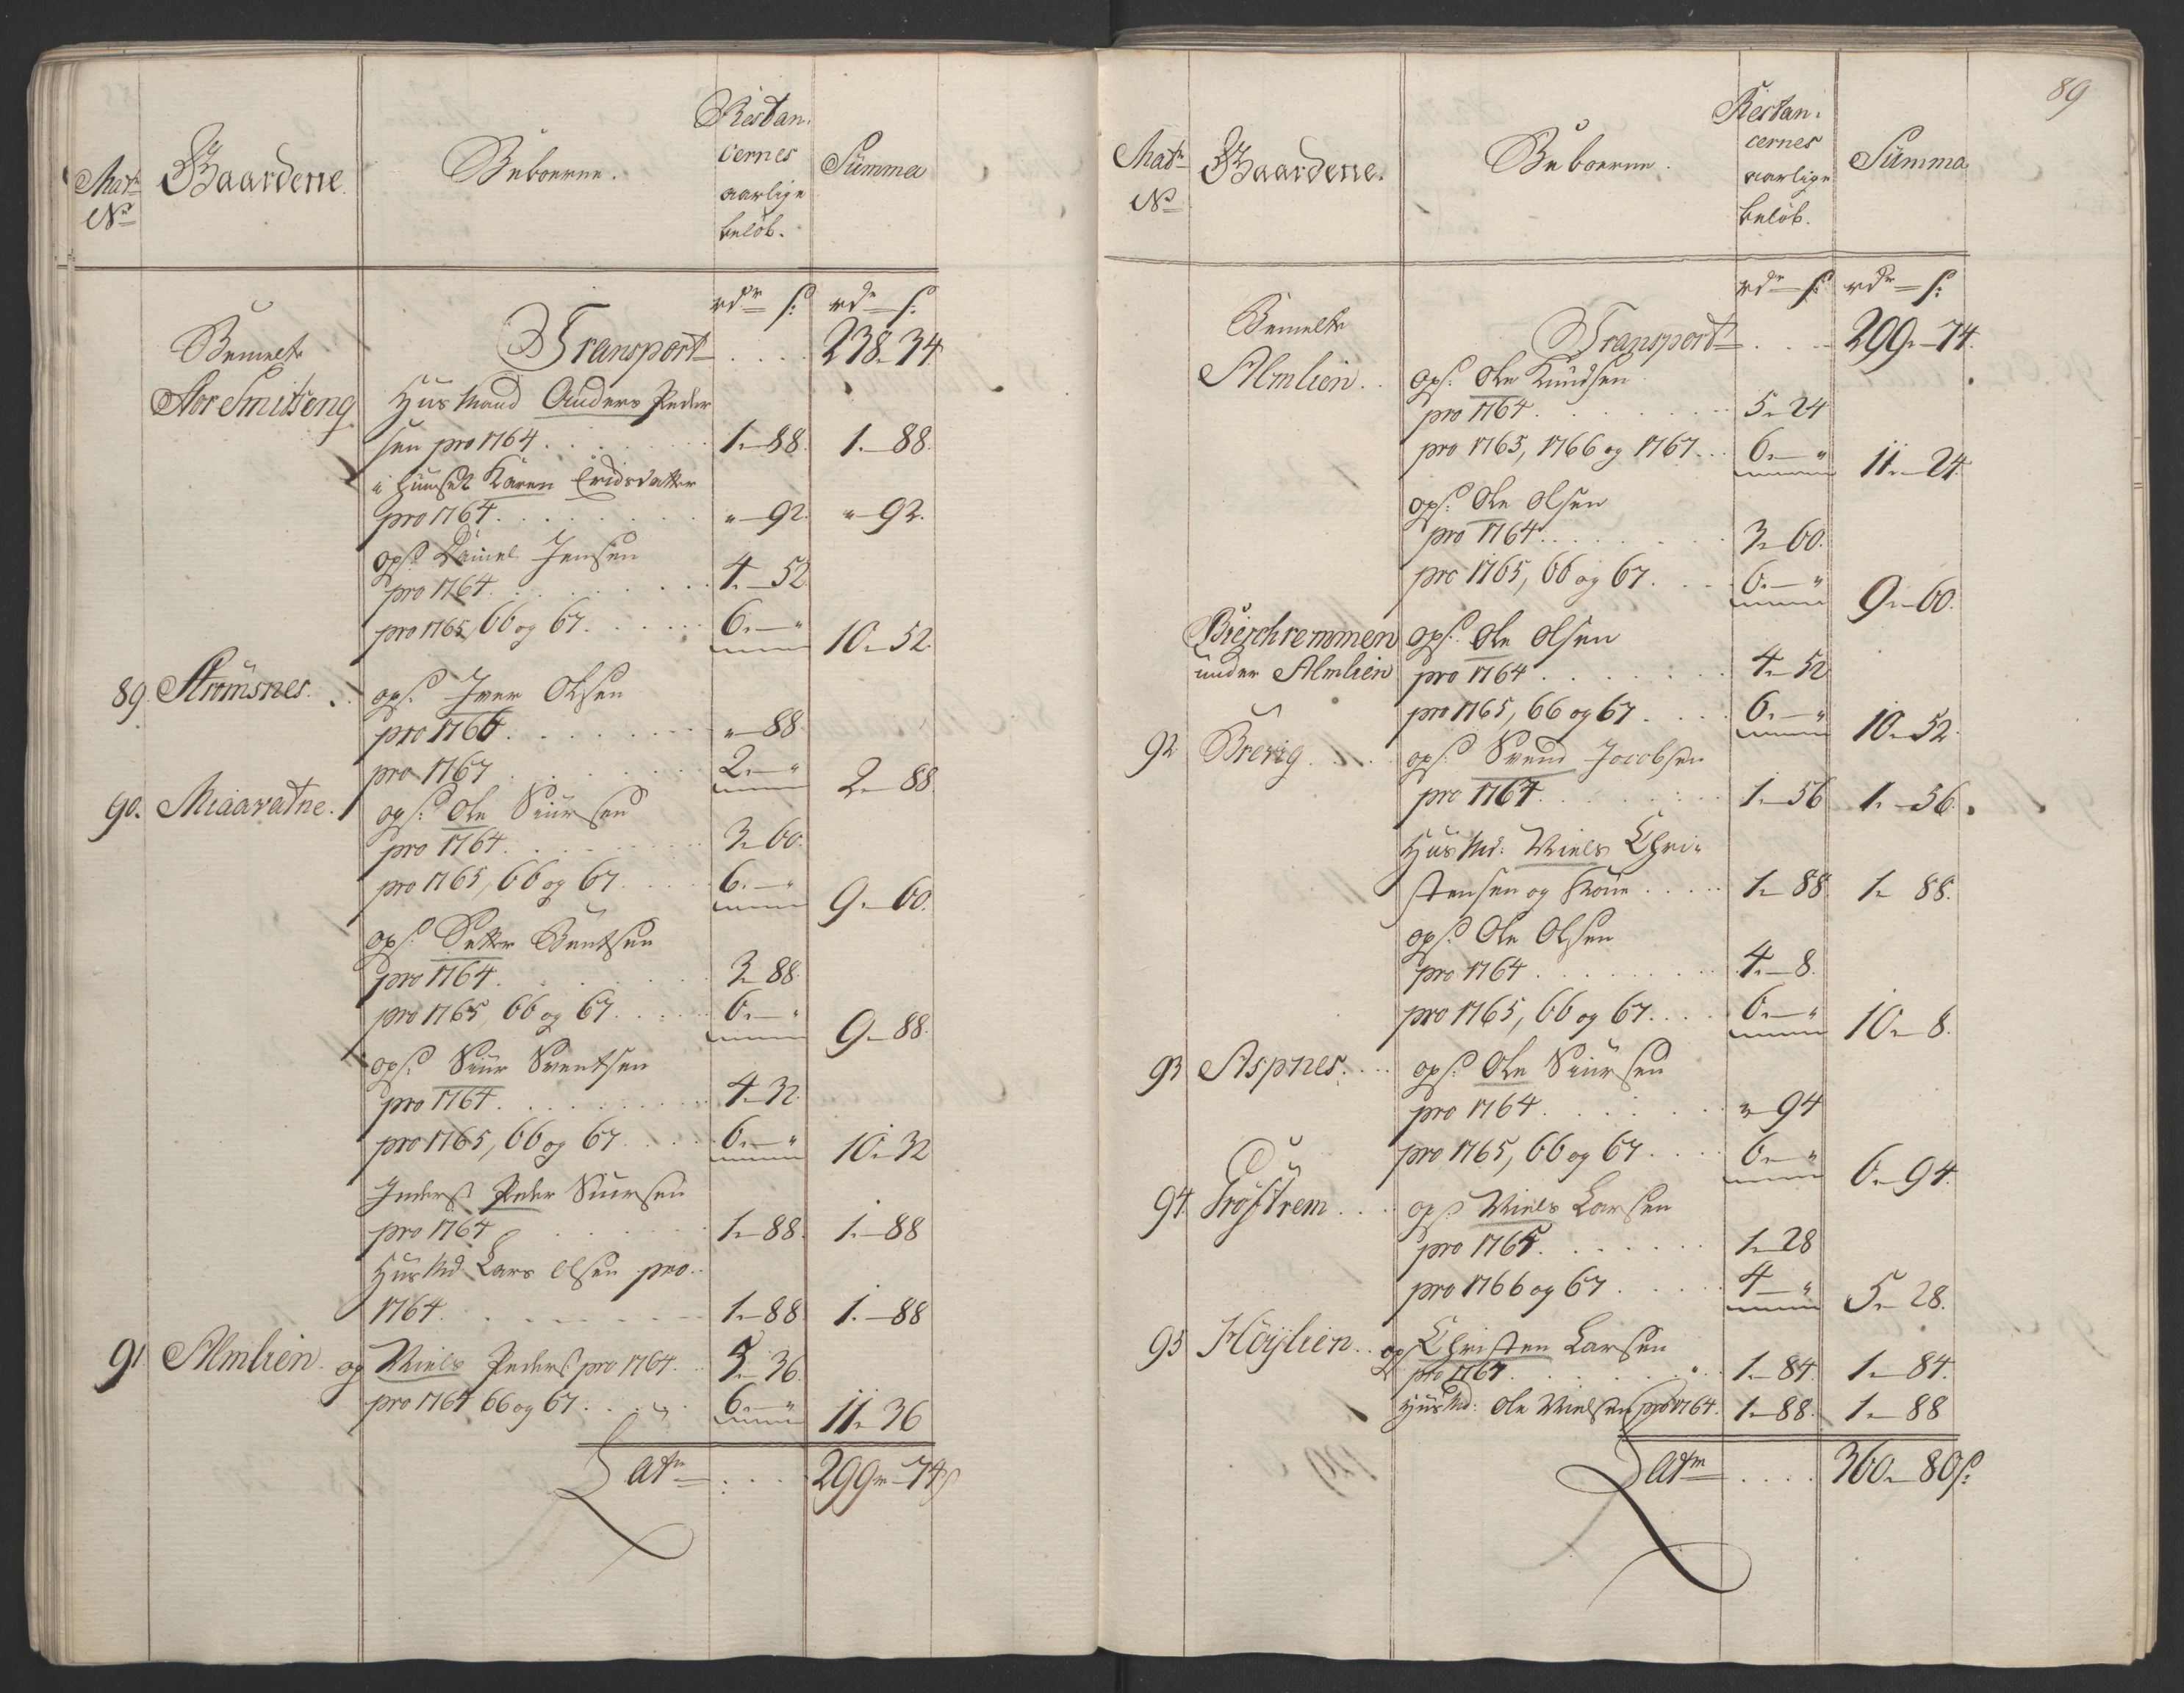 Matr
No
Gaardene.
Beboerne.
Restan-
cernes
aarlige
beløb.
Summa
rdr s: rdr s:
Bemelte Transport . . . . 238. 34.
Stor Smitteng Huusmand Anders Peder
sen pro 1764 . . . 1. 88. 1. 88.
i huuset Karen Eridsdatter
pro 1764 . . . " 92. " 92.
ops. Daniel Jensen
pro 1764 . . . 4. 52
pro 1765, 66 og 67 . . . 6. " 10. 52.
89. Strømsnes. ops. Iver Olsen
pro 1766 . . . " 88
pro 1767 . . . 2. " 2. 88
90. Miaavatne. ops: Ole Siursen
pro 1764 . . . 3. 60.
pro 1765, 66 og 67 . . . 6. " 9. 60.
ops. Petter Bentsen
pro 1764 . . . 3. 88
pro 1765, 66 og 67 . . . 6. " 9. 88.
ops. Siur Sventsen
pro 1764 . . . 4. 32
pro 1765, 66 og 67 . . . 6. " 10. 32
Inders. Peder Siursen
pro 1764 . . . 1. 88. 1. 88
Huusmd. Lars Olsen pro
1764 . . . 1. 88 1. 88
91 Almlien. op Niels Peders. pro 1764 . . 5. 36
pro 1764 66 og 67 . . . 6. " 11. 36
Latr . . . 299. 74s
89
Matr
No
Gaardene.
Beboerne.
Restan-
cernes
aarlige
beløb.
Summa
rdr s: rdr s:
Bemelte Transport . . . 299. 74.
Almlien . . ops. Ole Knudsen
pro 1764 . . . 5. 24
pro 1765, 1766 og 1767 . . 6. " 11. 24
ops. Ole Olsen
pro 1764 . . . 3. 60.
pro 1765, 66 og 67 . . . 6. " 9. 60.
Bierchremmen ops: Ole Olsen
under Almlien pro 1764 . . . 4. 52
pro 1765, 66 og 67 . . . 6. " 10. 52.
92 Brevig . . . ops. Svend Jacobsen
pro 1764 . . . 1. 56 1. 56.
Huusmd: Niels Chri-
stensen og Kone . . . 1. 88 1. 88.
ops. Ole Olsen
pro 1764 . . . 4. 8.
pro 1765, 66 og 67 . . . 6. " 10. 8.
93 Aspnes . . . ops. Ole Siursen
pro 1764 . . . " 94
pro 1765, 66 og 67 . . . 6. " 6. 94.
94 Grøstrem . . . ops Niels Larsen
pro 1765 . . . 1. 28
pro 1766 og 67 . . . 4. " 5. 28.
95 Høylien . . ops Christen Larsen
pro 1764 . . . 1. 84. 1. 84.
Huusmd: Ole Nielsen pro 1764. 1. 88. 1. 88
Latr . . . 360. 80s: